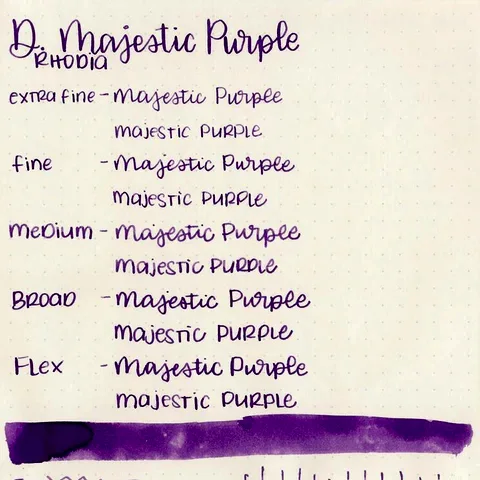 D. Majestic Purple
RHODIA
extra fine - Majestic Purple
majestic PURPLE
fine - Majestic Purple
majestic PURPLE
medium - Majestic Purple
majestic PURPLE
BROAD - Majestic Purple
majestic PURPLE
Flex - Majestic Purple
majestic PURPLE